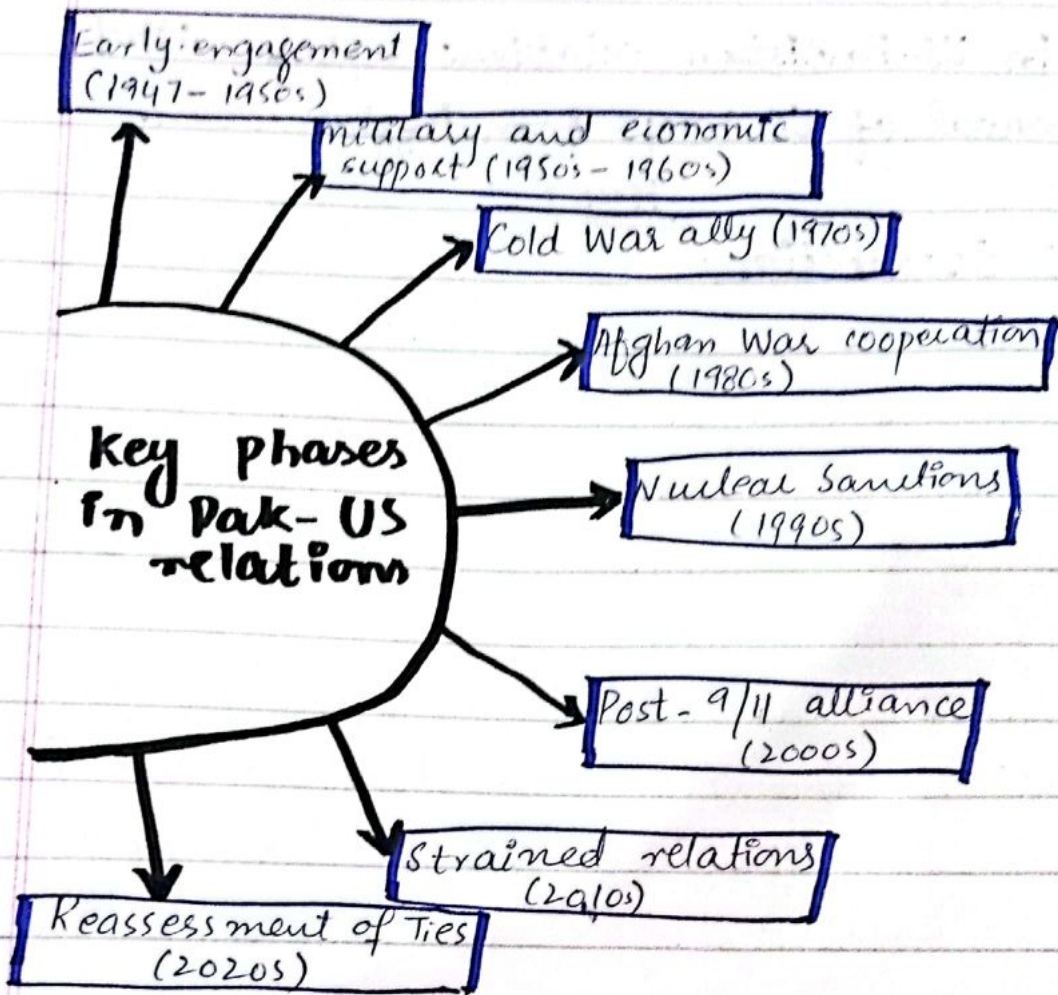 Early engagement
(1947 - 1950s)
military and economic
support (1950's - 1960s)
Cold War ally (1970s)
Afghan War cooperation
(1980s)
Key phases
in Pak-US
relations
Nuclear Sanctions
(1990s)
Post - 9/11 alliance
(2000s)
Strained relations
(2010s)
Reassessment of Ties
(2020s)